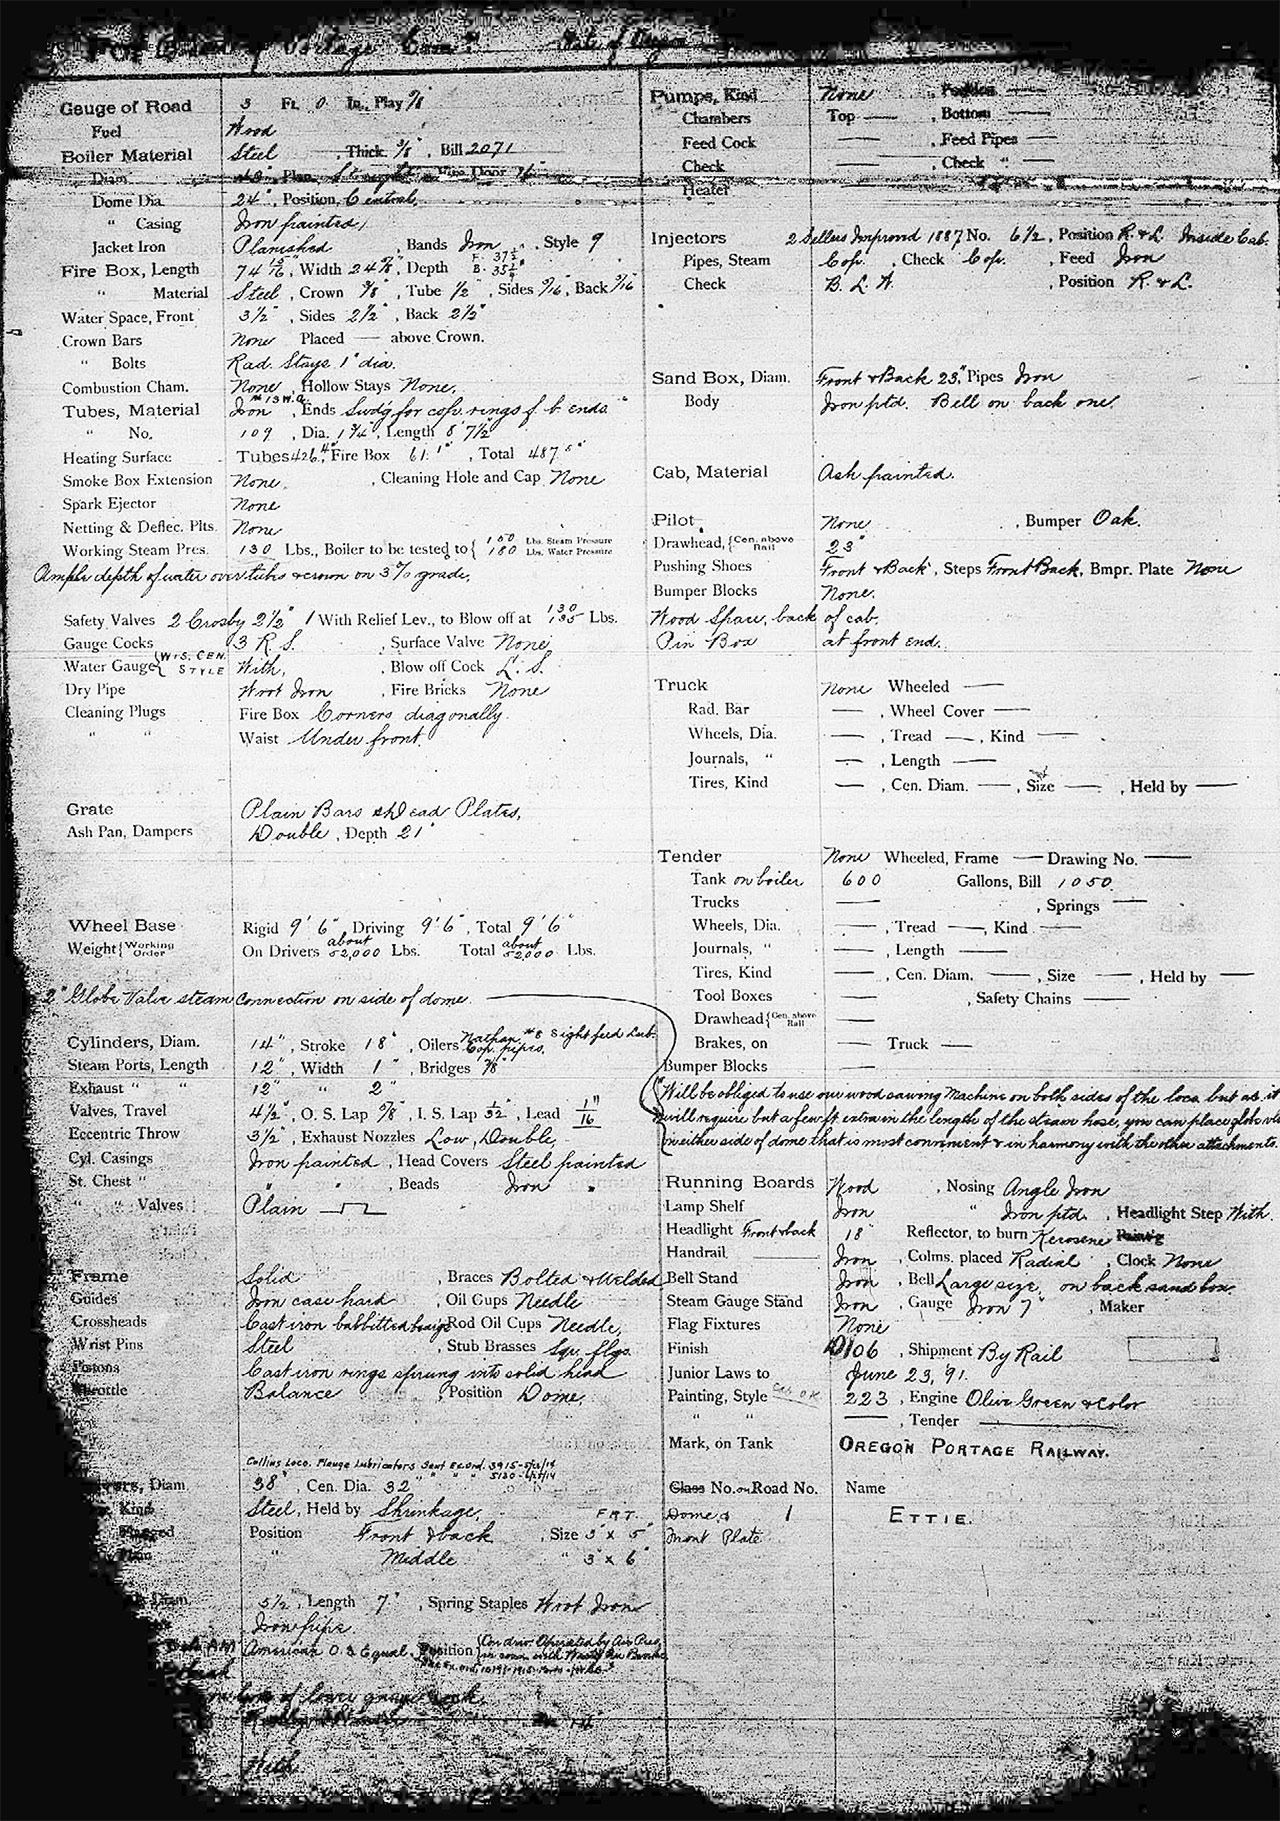 Portage Com. State of Oregon
Gauge of Road 3 Ft. 0 In., Play 5/8"
Fuel Wood
Boiler Material Steel , Thick 3/8" , Bill 2071
Diam. , Plan, Straight , Fire Door
Dome Dia. 24" , Position, Central,
" Casing Iron painted,
Jacket Iron Planished , Bands Iron , Style 9
Fire Box, Length 74 15/16" , Width 24 7/8" , Depth F. 37 1/2" B. 35 1/4"
" Material Steel , Crown 3/8" , Tube 1/2" , Sides 5/16" , Back 5/16"
Water Space, Front 3 1/2" , Sides 2 1/2" , Back 2 1/2"
Crown Bars None Placed — above Crown.
" Bolts Rad. Stays 1" dia.
Combustion Cham. None , Hollow Stays None.
Tubes, Material Iron # 13 W.G. , Ends Swd'g for cop. rings f. b. ends.
" No. 109 , Dia. 1 3/4" , Length 8' 7 1/2"
Heating Surface Tubes 426.4 , Fire Box 61.1 , Total 487.5
Smoke Box Extension None , Cleaning Hole and Cap None
Spark Ejector None
Netting & Deflec. Plts. None
Working Steam Pres. 130 Lbs., Boiler to be tested to { 150 Lbs. Steam Pressure 180 Lbs. Water Pressure
Ample depth of water over tubes & crown on 3% grade.
Safety Valves 2 Crosby 2 1/2" 1 With Relief Lev., to Blow off at 130 135 Lbs.
Gauge Cocks 3 R. S. , Surface Valve None
Water Gauge { W. S. CEN. STYLE With, , Blow off Cock L. S.
Dry Pipe Wrot Iron , Fire Bricks None
Cleaning Plugs Fire Box Corners diagonally.
" " Waist Under front.
Grate Plain Bars & Dead Plates,
Ash Pan, Dampers Double , Depth 21"
Wheel Base Rigid 9' 6" , Driving 9' 6" , Total 9' 6"
Weight { Working Order On Drivers about 52,000 Lbs. Total about 52,000 Lbs.
2" Globe Valve steam connection on side of dome.
Cylinders, Diam. 14" , Stroke 18" , Oilers Nathan #8 Sight feed Lub. Cop. pipes.
Steam Ports, Length 12" , Width 1" , Bridges 7/8"
Exhaust " " 12" " 2"
Valves, Travel 4 1/2" , O. S. Lap 5/8" , I. S. Lap 1/32" , Lead 1/16"
Eccentric Throw 3 1/2" , Exhaust Nozzles Low, Double,
Cyl. Casings Iron painted , Head Covers Steel painted
St. Chest " " " , Beads Iron "
" " Valves Plain
Frame Solid , Braces Bolted & Welded
Guides Iron case hard , Oil Cups Needle
Crossheads Cast iron babbitted , Rod Oil Cups Needle,
Wrist Pins Steel , Stub Brasses Sqr. flgs.
Pistons Cast iron rings sprung into solid head
Throttle Balance , Position Dome,
Collins Loco. Flange Lubricators Sent Ex. Ord. 3915-5/21/14
" " " " 5130-6/25/14
Drivers, Diam. 38" , Cen. Dia. 32"
Kind Steel, Held by Shrinkage,
Flanged Position Front & back , Size FRT. 3" x 5"
Plain " Middle " 3" x 6"
Diam. 5 1/2" , Length 7" , Spring Staples Wrot Iron
Iron pipe
American O. S. Equal. Position { On driv. Operated by Air
of lower gauge cock.
With
Pumps, Kind None , Position —
Chambers Top — , Bottom —
Feed Cock — , Feed Pipes —
Check — , Check " —
Heater
Injectors 2 Sellers Improved 1887 No. 6 1/2 , Position R. & L. Inside Cab.
Pipes, Steam Cop. , Check Cop. , Feed Iron
Check B. L. W. , Position R. & L.
Sand Box, Diam. Front & Back 23", Pipes Iron
Body Iron ptd. Bell on back one.
Cab, Material Ash painted.
Pilot None , Bumper Oak.
Drawhead, { Cen. above Rail 23"
Pushing Shoes Front & Back , Steps Front Back, Bmpr. Plate None
Bumper Blocks None.
Wood Space, back of cab.
Pin Box at front end.
Truck None Wheeled —
Rad. Bar — , Wheel Cover —
Wheels, Dia. — , Tread — , Kind —
Journals, " — , Length —
Tires, Kind — , Cen. Diam. — , Size — , Held by —
Tender None Wheeled, Frame — Drawing No. —
Tank on boiler 600 Gallons, Bill 1050
Trucks — , Springs —
Wheels, Dia. — , Tread — , Kind —
Journals, " — , Length —
Tires, Kind — , Cen. Diam. — , Size — , Held by —
Tool Boxes — , Safety Chains —
Drawhead { Cen. above Rail —
Brakes, on — Truck —
Bumper Blocks —
"Will be obliged to use our wood sawing machine on both sides of the loco. but as it
will require but a few ft. extra in the length of the steam hose, you can place globe
on either side of dome that is most convenient & in harmony with the other attachments.
Running Boards Wood , Nosing Angle Iron
Lamp Shelf Iron " Iron ptd. , Headlight Step With.
Headlight Front & back 18" Reflector, to burn Kerosene Paint'g
Handrail — Iron , Colms. placed Radial , Clock None
Bell Stand Iron , Bell Large size, on back sand box.
Steam Gauge Stand Iron , Gauge Iron 7" , Maker
Flag Fixtures None
Finish 106 , Shipment By Rail
Junior Laws to June 23, '91.
Painting, Style 223 , Engine Olive Green & Color
" " — , Tender —
Mark, on Tank OREGON PORTAGE RAILWAY.
Class No. on Road No. Name
Dome & 1 ETTIE.
Front Plate